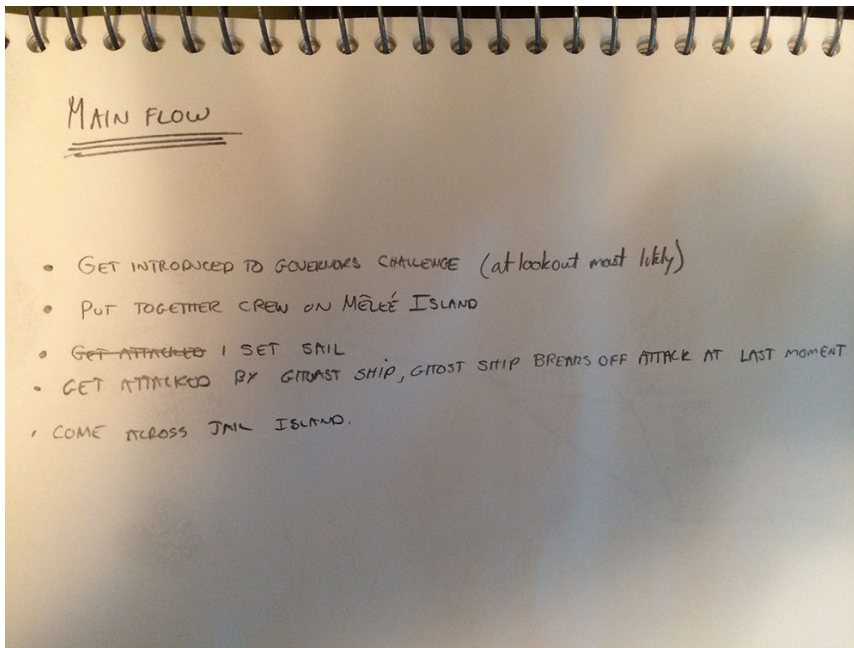 MAIN FLOW
• GET INTRODUCED TO GOVERNORS CHALLENGE (at lookout most likely)
• PUT TOGETHER CREW ON MÊLÉÉ ISLAND
• GET ATTACKED | SET SAIL
• GET ATTACKED BY GHOAST SHIP, GHOST SHIP BREAKS OFF ATTACK AT LAST MOMENT
• COME ACROSS JAIL ISLAND.